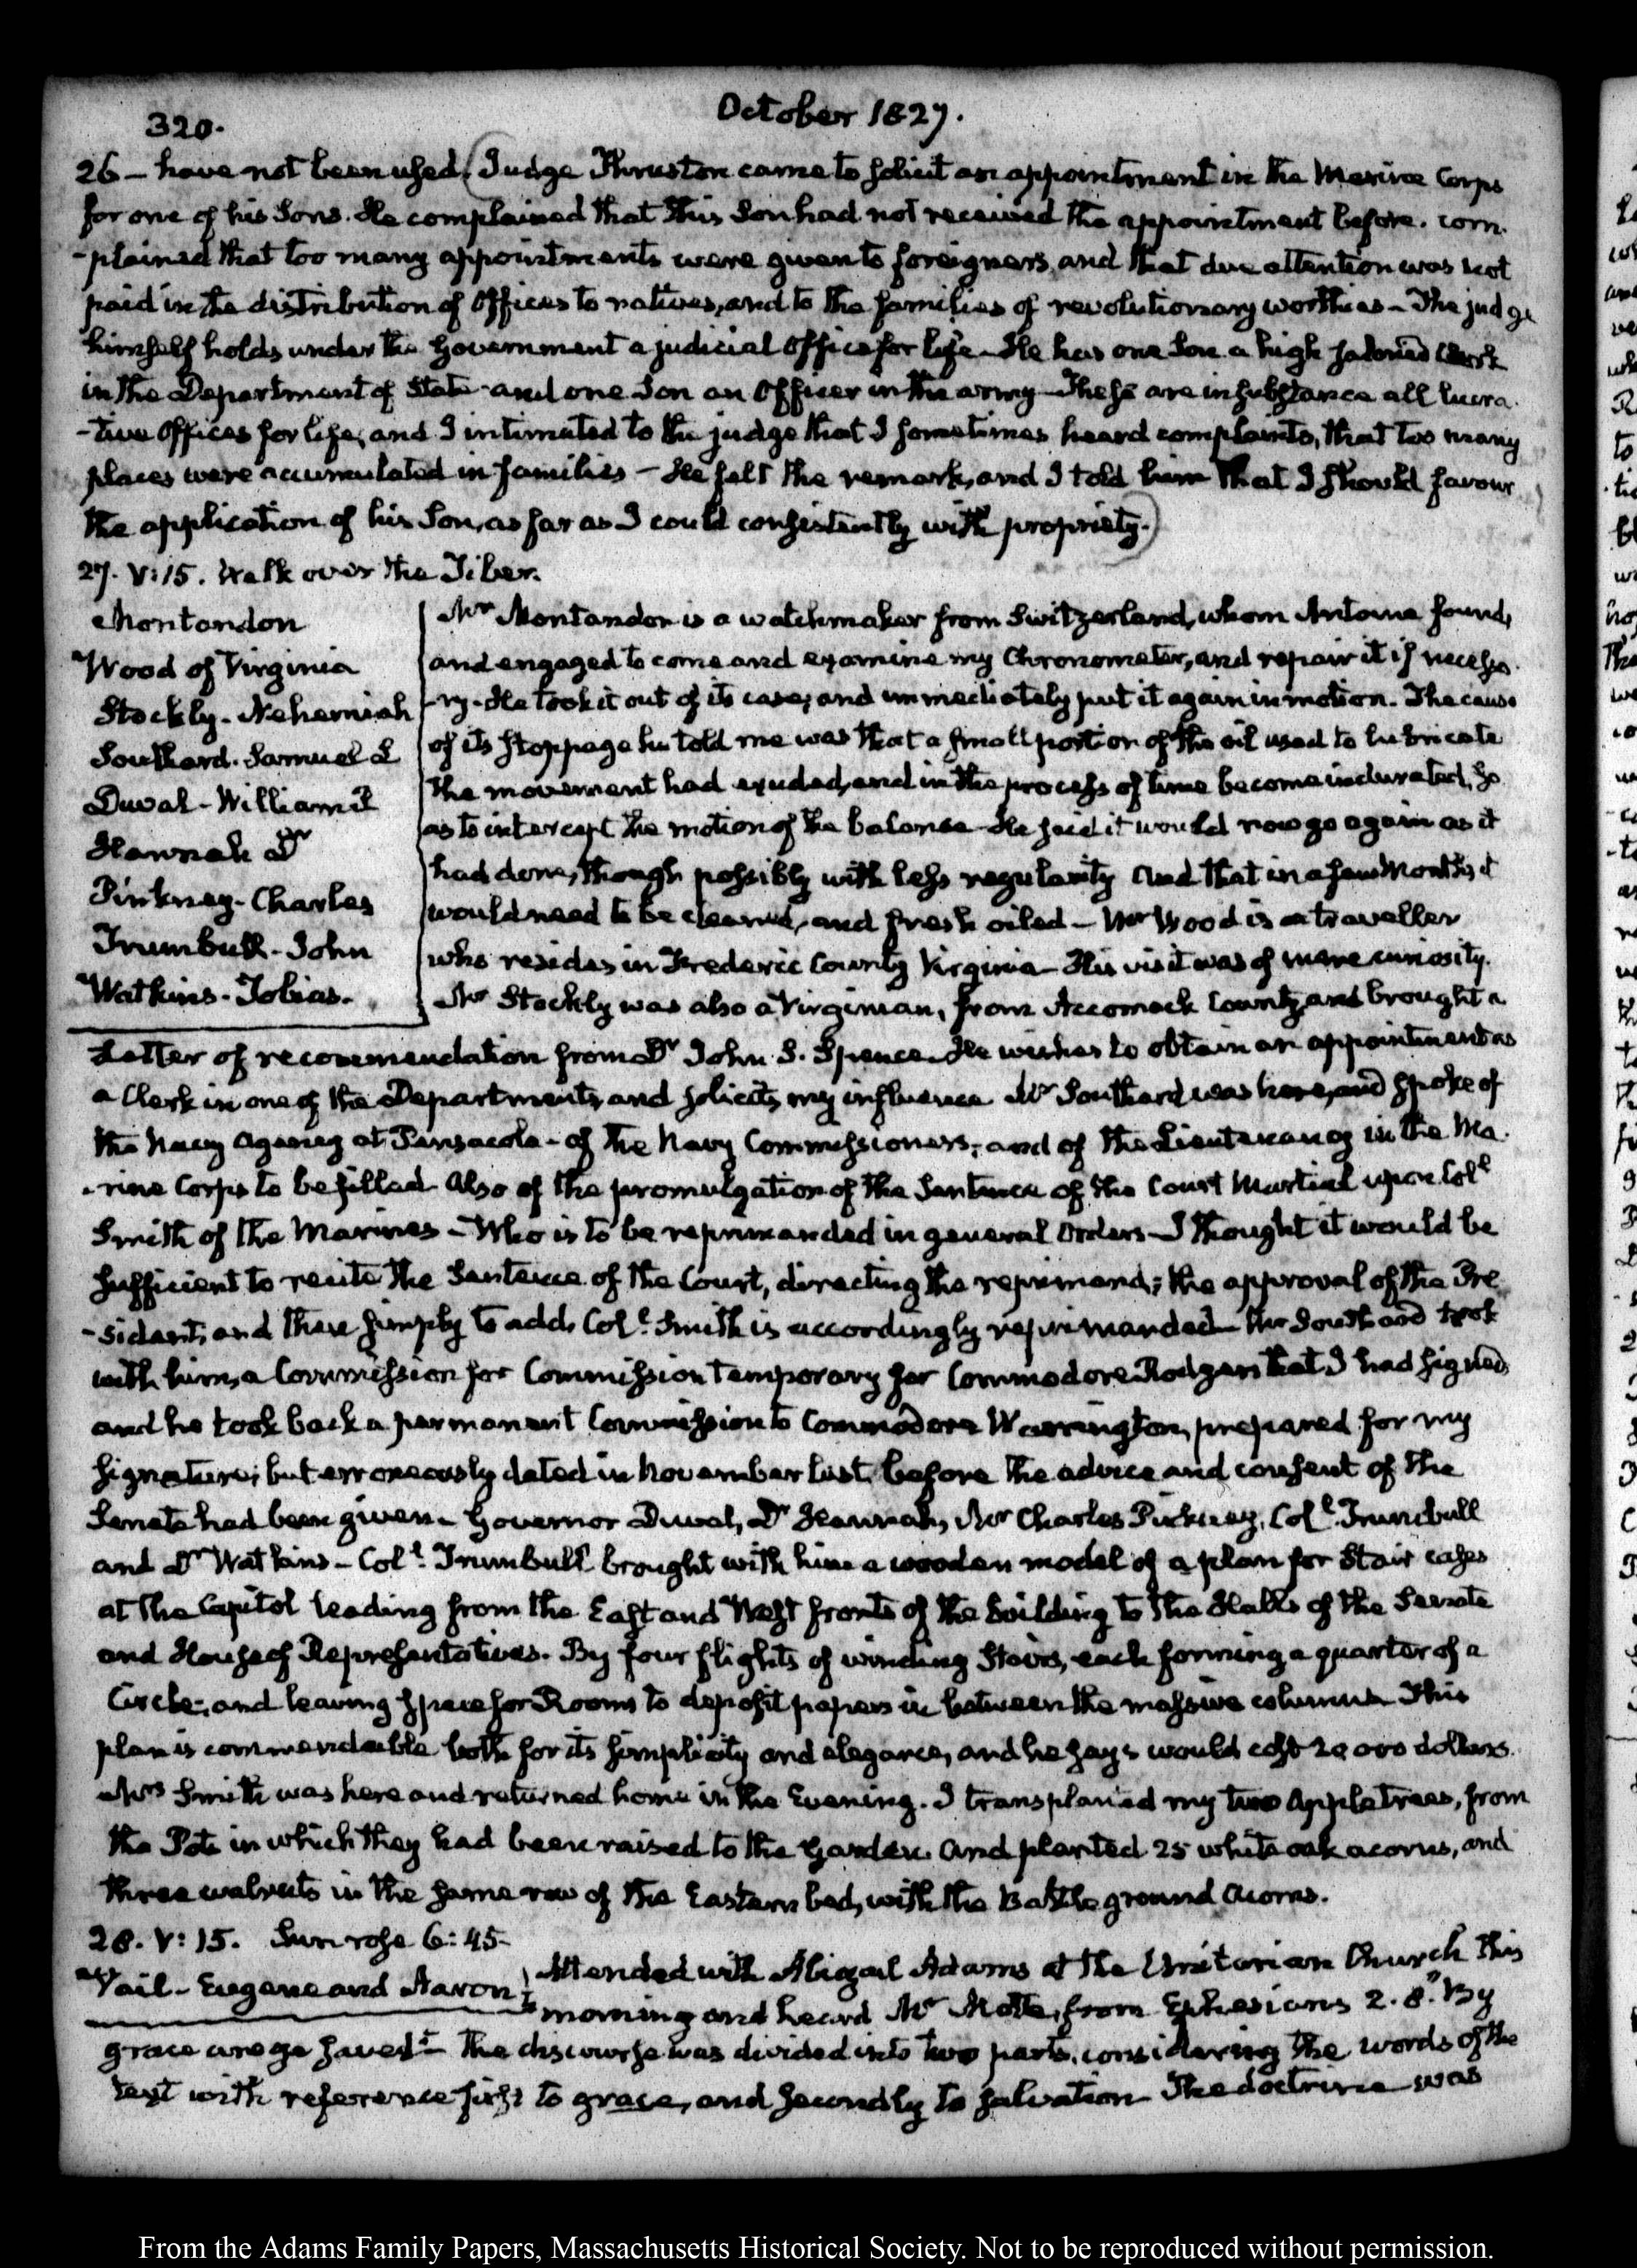 320.
October 1827.
26 – have not been used. (Judge Thruston came to solicit an appointment in the Marine Corps
for one of his Sons. He complained that this Son had not received the appointment before. com-
-plained that too many appointments were given to foreigners, and that due attention was not
paid in the distribution of Offices to natives, and to the families of revolutionary worthies – The judge
himself holds under the Government a judicial Office for life – He has one Son a high salaried Clerk
in the Department of State – and one Son an Officer in the army – These are in substance all lucra-
-tive Offices for life, and I intimated to the judge that I sometimes heard complaints, that too many
places were accumulated in families – He felt the remark, and I told him that I should favour
the application of his Son, as far as I could consistently with propriety.)
27. V:15. Walk over the Tiber.
Montandon
Wood of Virginia
Stockly – Nehemiah
Southard. Samuel L
Duval – William P
Hannah Dr
Pinkney – Charles
Trumbull – John
Watkins – Tobias.
Mr Montandon is a watchmaker from Switzerland, whom Antoine found,
and engaged to come and examine my Chronometer, and repair it if necessa-
-ry – He took it out of its case, and immediately put it again in motion. The cause
of its stoppage he told me was that a small portion of the oil used to lubricate
the movement had exuded, and in the process of time become indurated, so
as to intercept the motion of the balance – He said it would now go again as it
had done, though possibly with less regularity and that in a few Months it
would need to be cleaned, and fresh oiled – Mr Wood is a traveller
who resides in Frederic County Virginia – His visit was of mere curiosity.
Mr Stockly was also a Virginian, from Accomack County, and brought a
Letter of recommendation from Dr John S. Spence. He wishes to obtain an appointment as
a Clerk in one of the Departments, and solicits my influence Mr Southard was here, and spoke of
the Navy Agency at Pensacola – of the Navy Commissioners, – and of the Lieutenancy in the Ma-
-rine Corps to be filled – Also of the promulgation of the Sentence of the Court Martial upon Colt
Smith of the Marines – Who is to be reprimanded in general Orders – I thought it would be
sufficient to recite the Sentence of the Court, directing the reprimand; the approval of the Pre-
-sident; and then simply to add, Colt. Smith is accordingly reprimanded – Mr Southard took
with him, a Commission for Commission temporary for Commodore Rodgers that I had signed,
and he took back a permanent Commission to Commodore Warrington, prepared for my
signature; but erroneously dated in November last, before the advice and consent of the
Senate had been given – Governor Duval, Dr Hannah, Mr Charles Pinkney, Colt. Trumbull
and Dr Watkins – Colt. Trumbull brought with him a wooden model of a plan for Stair cases
at the Capitol leading from the East and West fronts of the building to the Halls of the Senate
and House of Representatives. By four flights of winding Stairs, each forming a quarter of a
Circle; and leaving space for Rooms to deposit papers in between the massive columns This
plan is commendable both for its simplicity and elegance, and he says would cost 20 000 dollars.
Mrs Smith was here and returned home in the Evening. I transplanted my two Apple trees, from
the Pots in which they had been raised to the Garden. and planted 25 white oak acorns, and
three walnuts in the same row of the Eastern bed, with the Battle ground Acorns.
28. V:15. Sun rose 6:45.
Vail – Eugene and Aaron
Attended with Abigail Adams at the Unitarian Church this
morning and heard Mr Motte, from Ephesians 2. 8. "By
grace are ye saved" – The discourse was divided into two parts, considering the words of the
text with reference first to grace, and secondly to salvation – The doctrine was
From the Adams Family Papers, Massachusetts Historical Society. Not to be reproduced without permission.